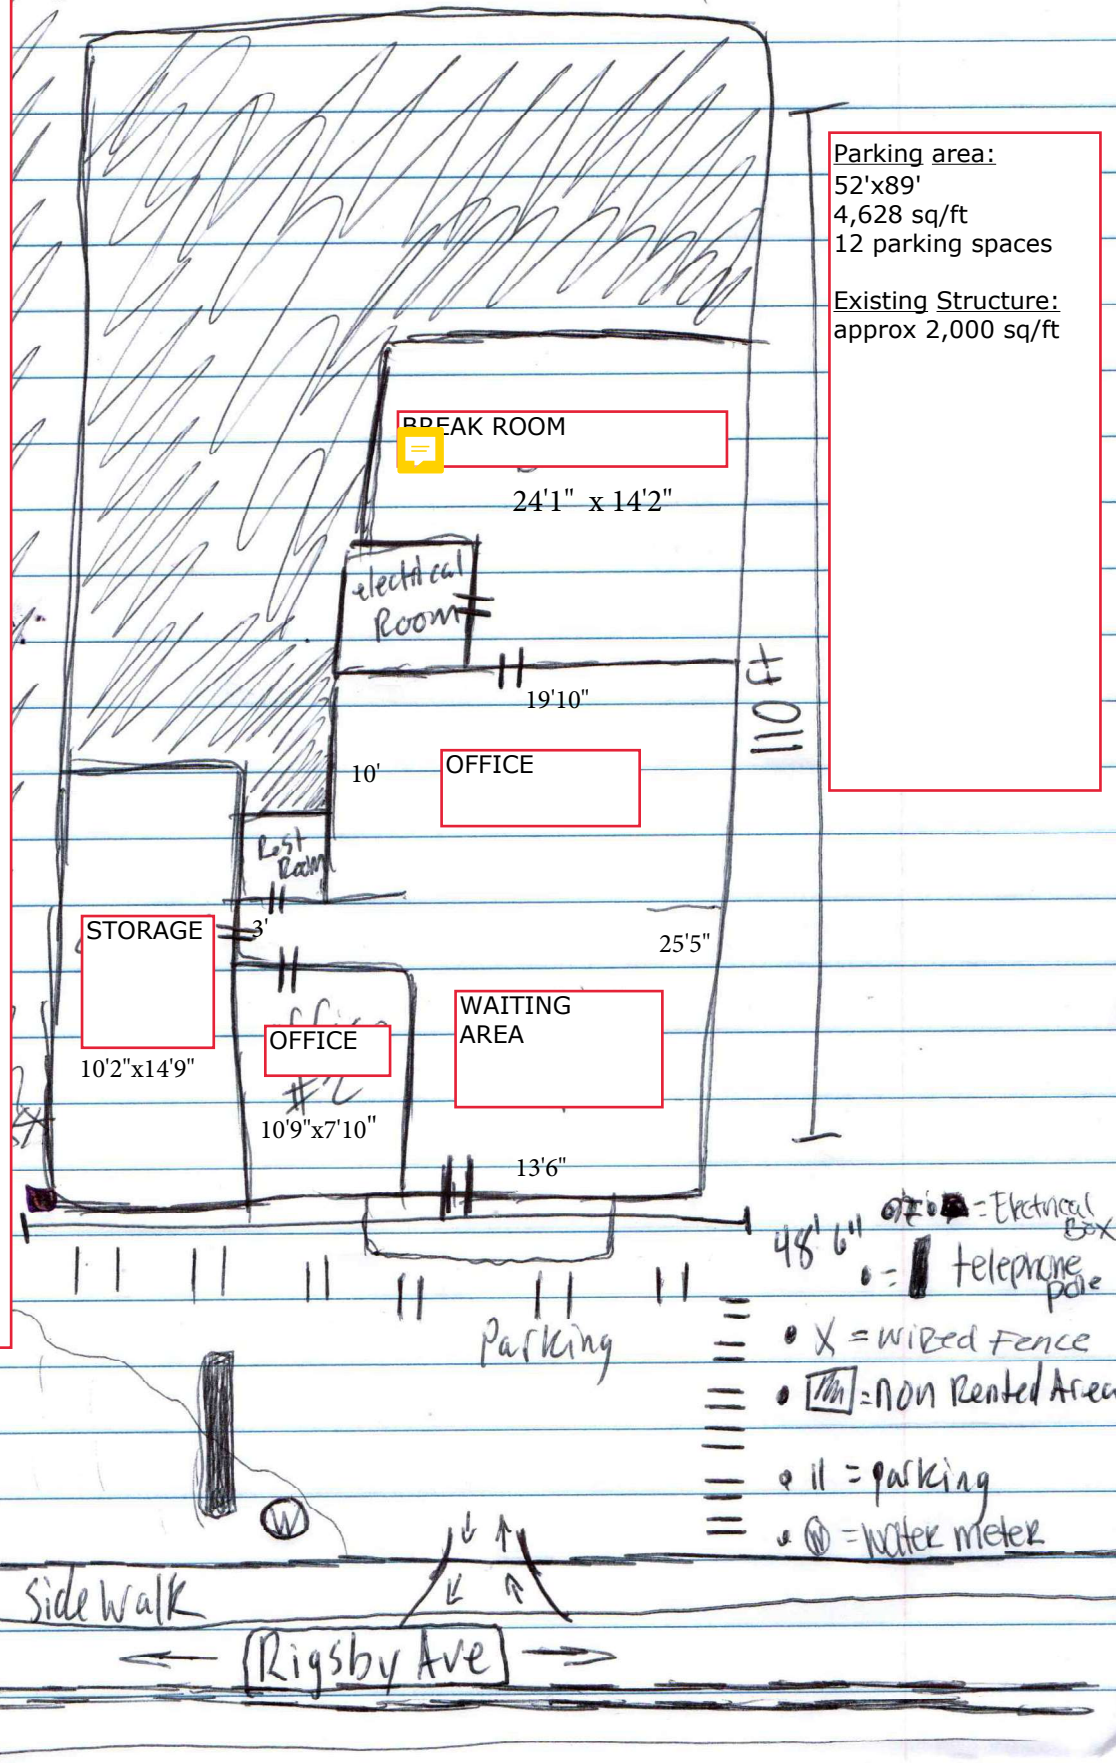 Parking area:
52'x89'
4,628 sq/ft
12 parking spaces
Existing Structure:
approx 2,000 sq/ft
BREAK ROOM
24'1" x 14'2"
electrical
Room
19'10"
110 ft
10'
OFFICE
Rest
Room
STORAGE
3'
25'5"
WAITING
AREA
OFFICE
#2
10'2"x14'9"
10'9"x7'10"
13'6"
48' 6"
= Electrical
Box
= telephone
pole
Parking
X = wired Fence
= non Rented Area
11 = parking
W
W = water meter
Side Walk
Rigsby Ave